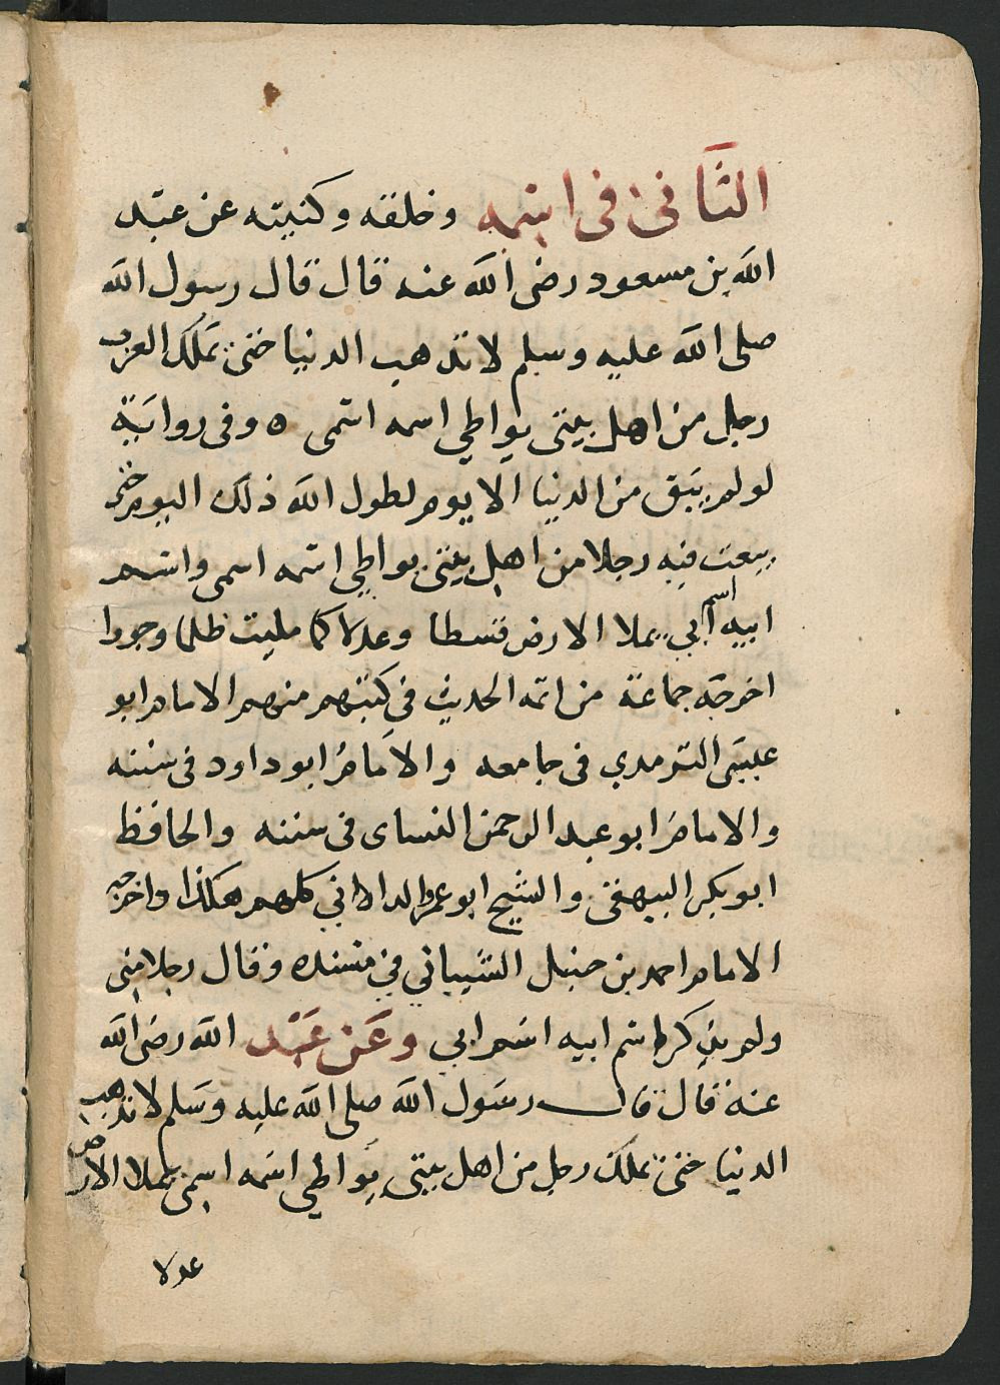 الثاني في اسمه وخلقه وكنيته عن عبد
الله بن مسعود رضى الله عنه قال قال رسول الله
صلى الله عليه وسلم لا تذهب الدنيا حتى تملك العرب
رجل من اهل بيتى يواطي اسمه اسمى ه وفى رواية
لو لم يبق من الدنيا الا يوم لطول الله ذلك اليوم حتى
يبعث فيه رجلا من اهل بيتى يواطي اسمه اسمى واسم
ابيه اسم أبي يملا الارض قسطا وعدلا كما مليت ظلما وجورا
اخرجه جماعة من ائمه الحديث في كتبهم منهم الامام ابو
عيسى الترمدي فى جامعه والامام ابو داود فى سننه
والامام ابو عبد الرحمن النساى فى سننه والحافظ
ابو بكر البيهقى والشيخ ابو عمرو الدانى كلهم هكذا واخرجه
الامام احمد بن حنبل الشيباني في مسنده وقال رجلا منى
ولم يذكر اسم ابيه اسم ابي وعن عبد الله رضى الله
عنه قال قال رسول الله صلى الله عليه وسلم لا تذهب
الدنيا حتى يملك رجل من اهل بيتى يواطي اسمه اسمى يملا الارض
عدلا